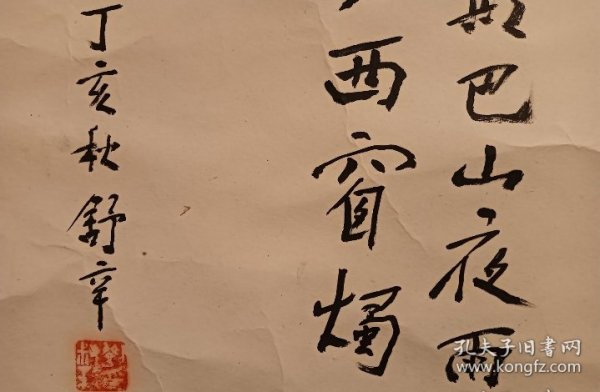 巴山夜雨
西窗燭
丁亥秋 舒辛
孔夫子旧书网
www.kongfz.com